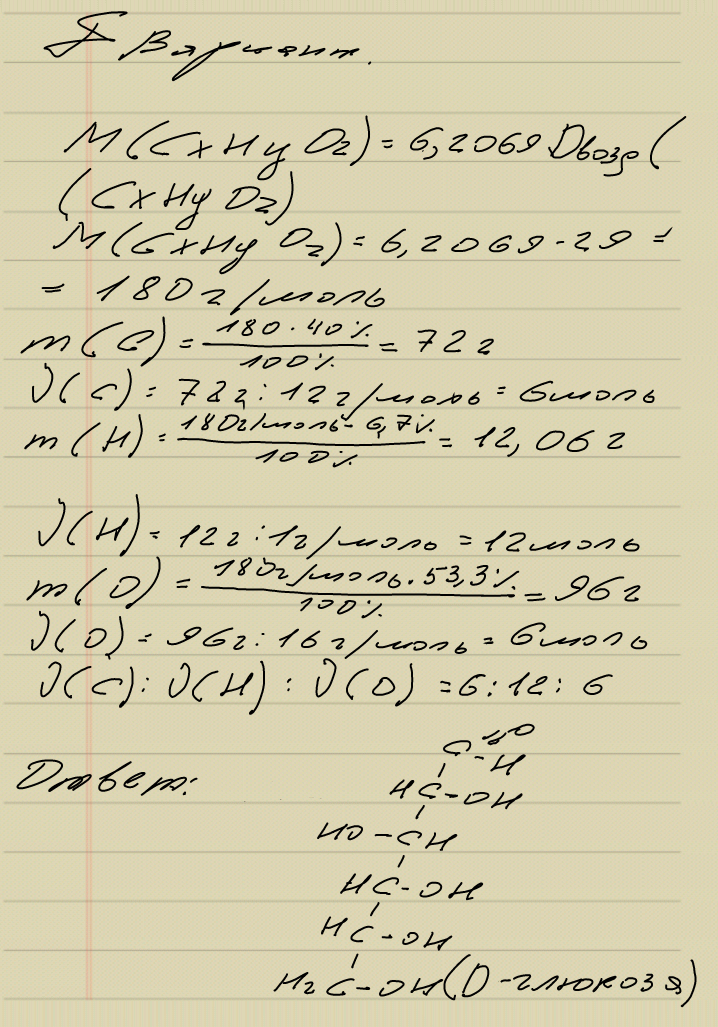 I Вариант.
M(CxHyOz) = 6,2069 Dвозд(
(CxHyOz)
M(CxHyOz) = 6,2069 · 29 =
= 180 г/моль
m(C) = 180 · 40% / 100% = 72 г
ν(C) = 72г : 12 г/моль = 6 моль
m(H) = 180г/моль · 6,7% / 100% = 12,06 г
ν(H) = 12г : 1г/моль = 12 моль
m(O) = 180г/моль · 53,3% / 100% = 96 г
ν(O) = 96г : 16 г/моль = 6 моль
ν(C) : ν(H) : ν(O) = 6 : 12 : 6
Ответ:
C=O
-H
HC-OH
HO-CH
HC-OH
HC-OH
H₂C-OH (D-глюкоза)